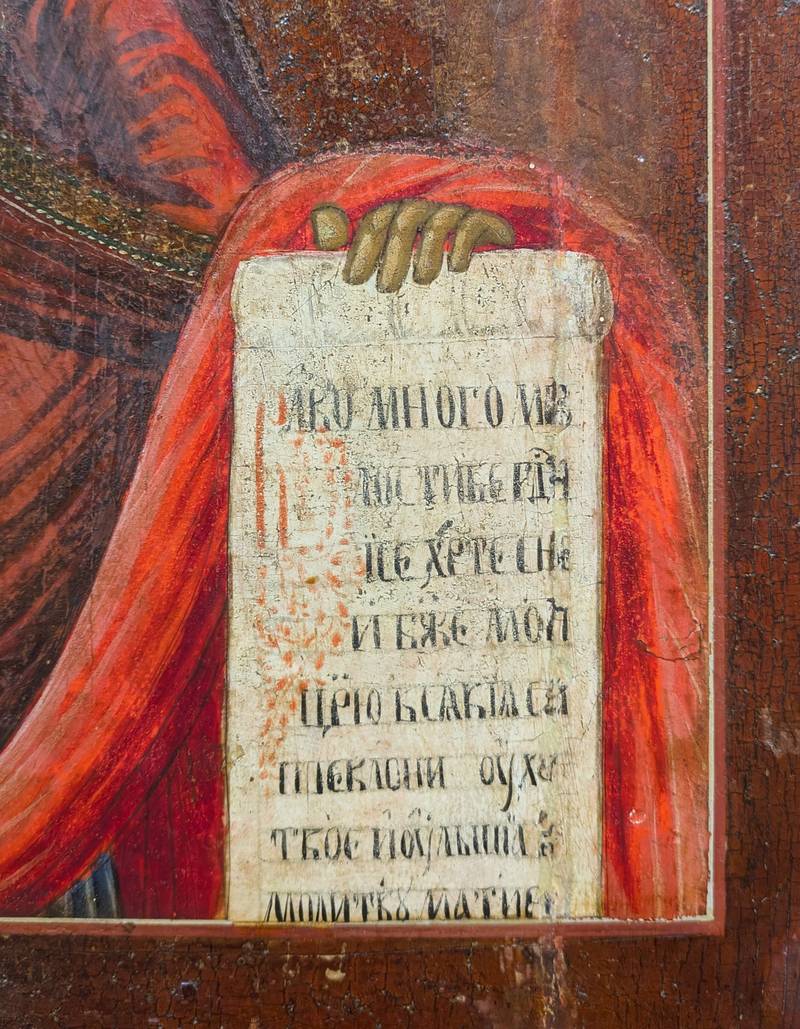 ЛКО МНОГО МЛ
ЛОСТИВЕ ГДИ
ІСЕ ХРТЕ СНЕ
И БЖЕ МОЛ
ЦРЮ ВСАКІА
ПРЕКЛОНИ ОУХО
ТВОЕ И ОУСЛЫШИ
МОЛИТВꙋ МАТИЕ